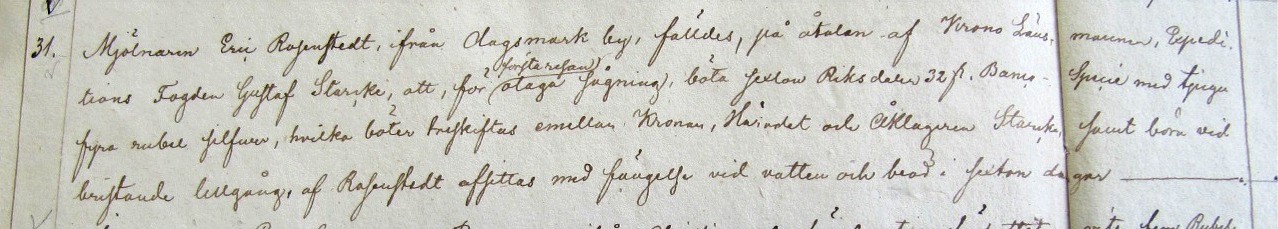 31. Mjölnaren Eric Rosenstedt, ifrån Dagsmark by, fälldes, på åtalan af Krono Läns- mannen, Expedi-
tions Fogden Gustaf Starcke, att, för (första resan) olaga sågning, böta sexton Riksdaler 32 ß. Banco- Specie med tjugu
fyra rubel silfver, hvilka böter treskiftas emellan Kronan, Häradet och Åklagaren Starcke, samt böra vid
bristande tillgång, af Rosenstedt afsittas med fängelse vid vatten och bröd i sexton dagar